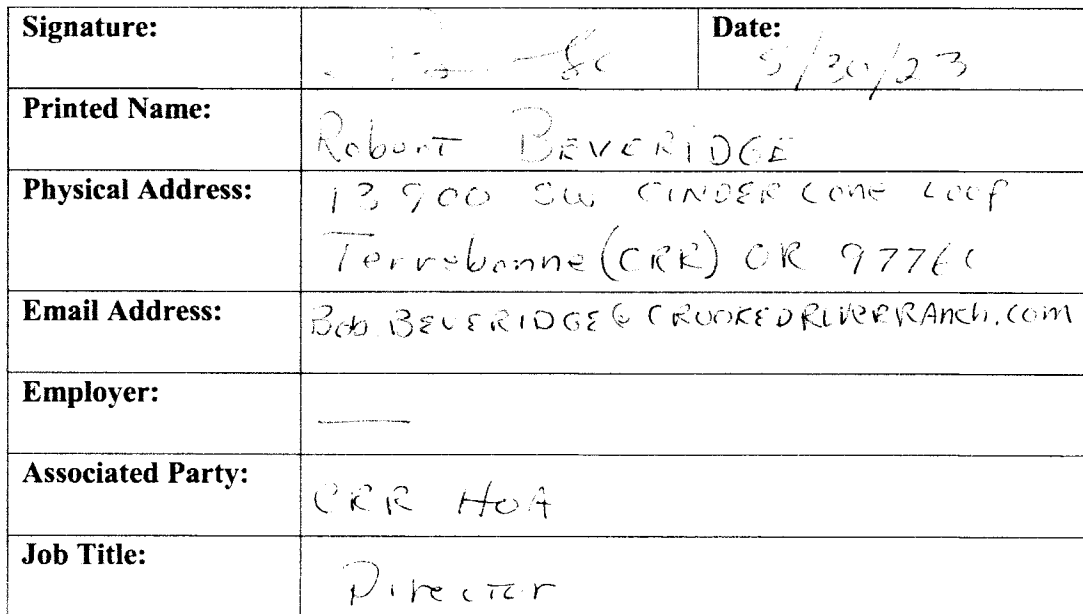 Signature:
Date: 5/30/23
Printed Name: Robert BEVERIDGE
Physical Address: 13900 SW CINDER CONE LOOP
Terrebonne (CRR) OR 97760
Email Address: Bob.BEVERIDGE@CROOKEDRIVERRANch.com
Employer: —
Associated Party: CRR HOA
Job Title: Director